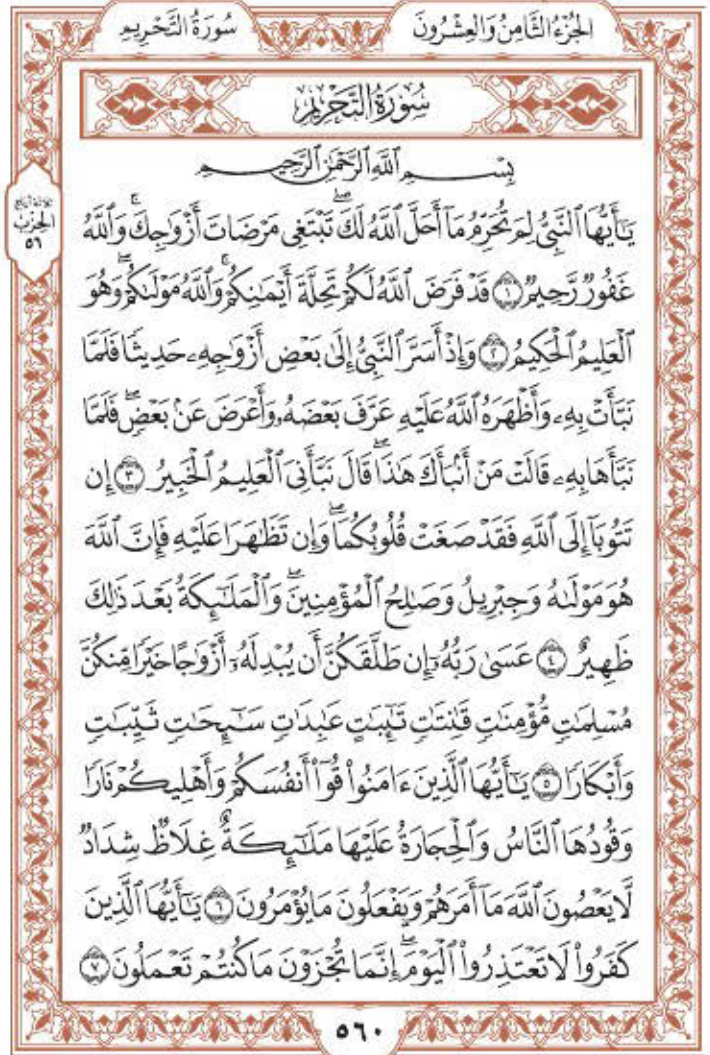 سُورَةُ التَّحْرِيمِ
الجُزْءُ الثَّامِنُ وَالعِشْرُونَ
سُورَةُ التَّحْرِيمِ
بِسْمِ ٱللَّهِ ٱلرَّحْمَٰنِ ٱلرَّحِيمِ
يَٰٓأَيُّهَا ٱلنَّبِىُّ لِمَ تُحَرِّمُ مَآ أَحَلَّ ٱللَّهُ لَكَۖ تَبْتَغِى مَرْضَاتَ أَزْوَٰجِكَۚ وَٱللَّهُ
غَفُورٌ رَّحِيمٌ ١ قَدْ فَرَضَ ٱللَّهُ لَكُمْ تَحِلَّةَ أَيْمَٰنِكُمْۚ وَٱللَّهُ مَوْلَىٰكُمْۖ وَهُوَ
ٱلْعَلِيمُ ٱلْحَكِيمُ ٢ وَإِذْ أَسَرَّ ٱلنَّبِىُّ إِلَىٰ بَعْضِ أَزْوَٰجِهِۦ حَدِيثًا فَلَمَّا
نَبَّأَتْ بِهِۦ وَأَظْهَرَهُ ٱللَّهُ عَلَيْهِ عَرَّفَ بَعْضَهُۥ وَأَعْرَضَ عَنۢ بَعْضٍۖ فَلَمَّا
نَبَّأَهَا بِهِۦ قَالَتْ مَنْ أَنۢبَأَكَ هَٰذَاۖ قَالَ نَبَّأَنِىَ ٱلْعَلِيمُ ٱلْخَبِيرُ ٣ إِن
تَتُوبَآ إِلَى ٱللَّهِ فَقَدْ صَغَتْ قُلُوبُكُمَاۖ وَإِن تَظَٰهَرَا عَلَيْهِ فَإِنَّ ٱللَّهَ
هُوَ مَوْلَىٰهُ وَجِبْرِيلُ وَصَٰلِحُ ٱلْمُؤْمِنِينَۖ وَٱلْمَلَٰٓئِكَةُ بَعْدَ ذَٰلِكَ
ظَهِيرٌ ٤ عَسَىٰ رَبُّهُۥٓ إِن طَلَّقَكُنَّ أَن يُبْدِلَهُۥٓ أَزْوَٰجًا خَيْرًا مِّنكُنَّ
مُسْلِمَٰتٍ مُّؤْمِنَٰتٍ قَٰنِتَٰتٍ تَٰٓئِبَٰتٍ عَٰبِدَٰتٍ سَٰٓئِحَٰتٍ ثَيِّبَٰتٍ
وَأَبْكَارًا ٥ يَٰٓأَيُّهَا ٱلَّذِينَ ءَامَنُوا۟ قُوٓا۟ أَنفُسَكُمْ وَأَهْلِيكُمْ نَارًا
وَقُودُهَا ٱلنَّاسُ وَٱلْحِجَارَةُ عَلَيْهَا مَلَٰٓئِكَةٌ غِلَاظٌ شِدَادٌ
لَّا يَعْصُونَ ٱللَّهَ مَآ أَمَرَهُمْ وَيَفْعَلُونَ مَا يُؤْمَرُونَ ٦ يَٰٓأَيُّهَا ٱلَّذِينَ
كَفَرُوا۟ لَا تَعْتَذِرُوا۟ ٱلْيَوْمَۖ إِنَّمَا تُجْزَوْنَ مَا كُنتُمْ تَعْمَلُونَ ٧
الحِزْب
٥٦
٥٦٠